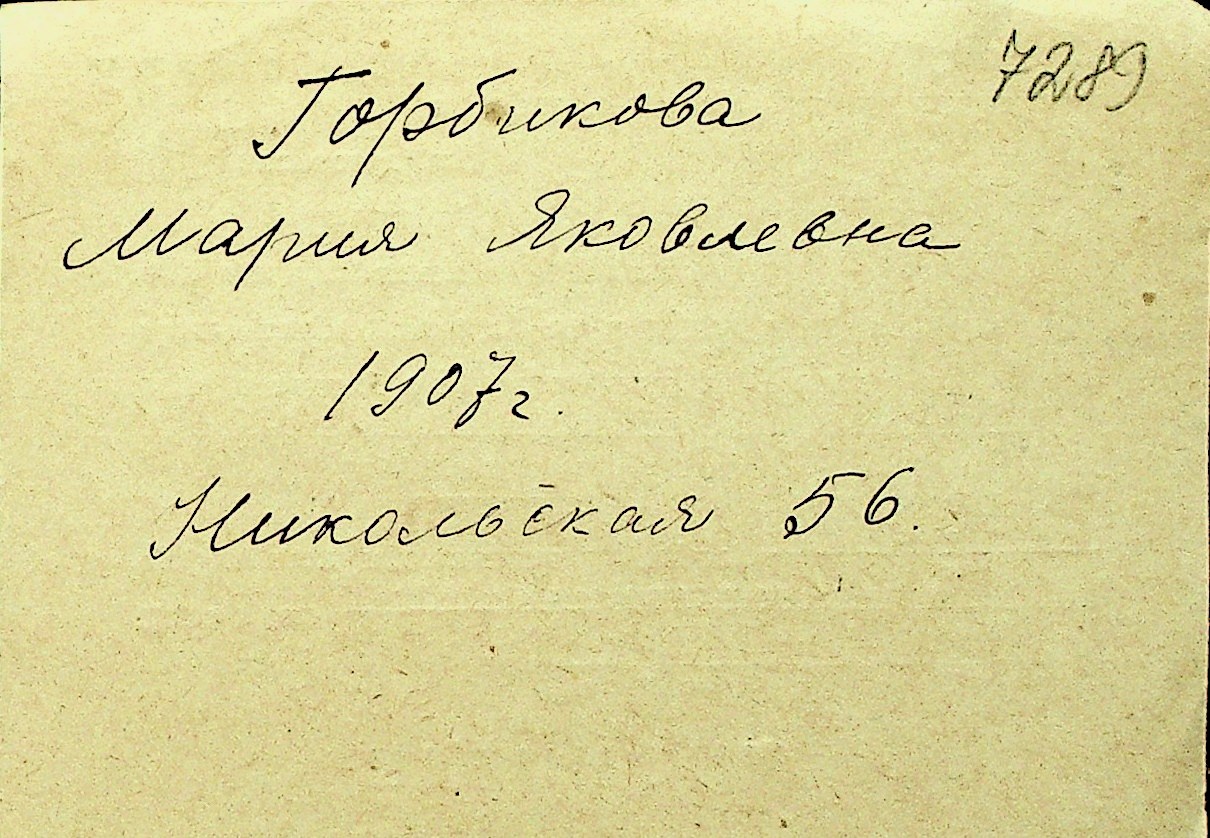 7289
Горбикова
Мария Яковлевна
1907г.
Никольская 56.